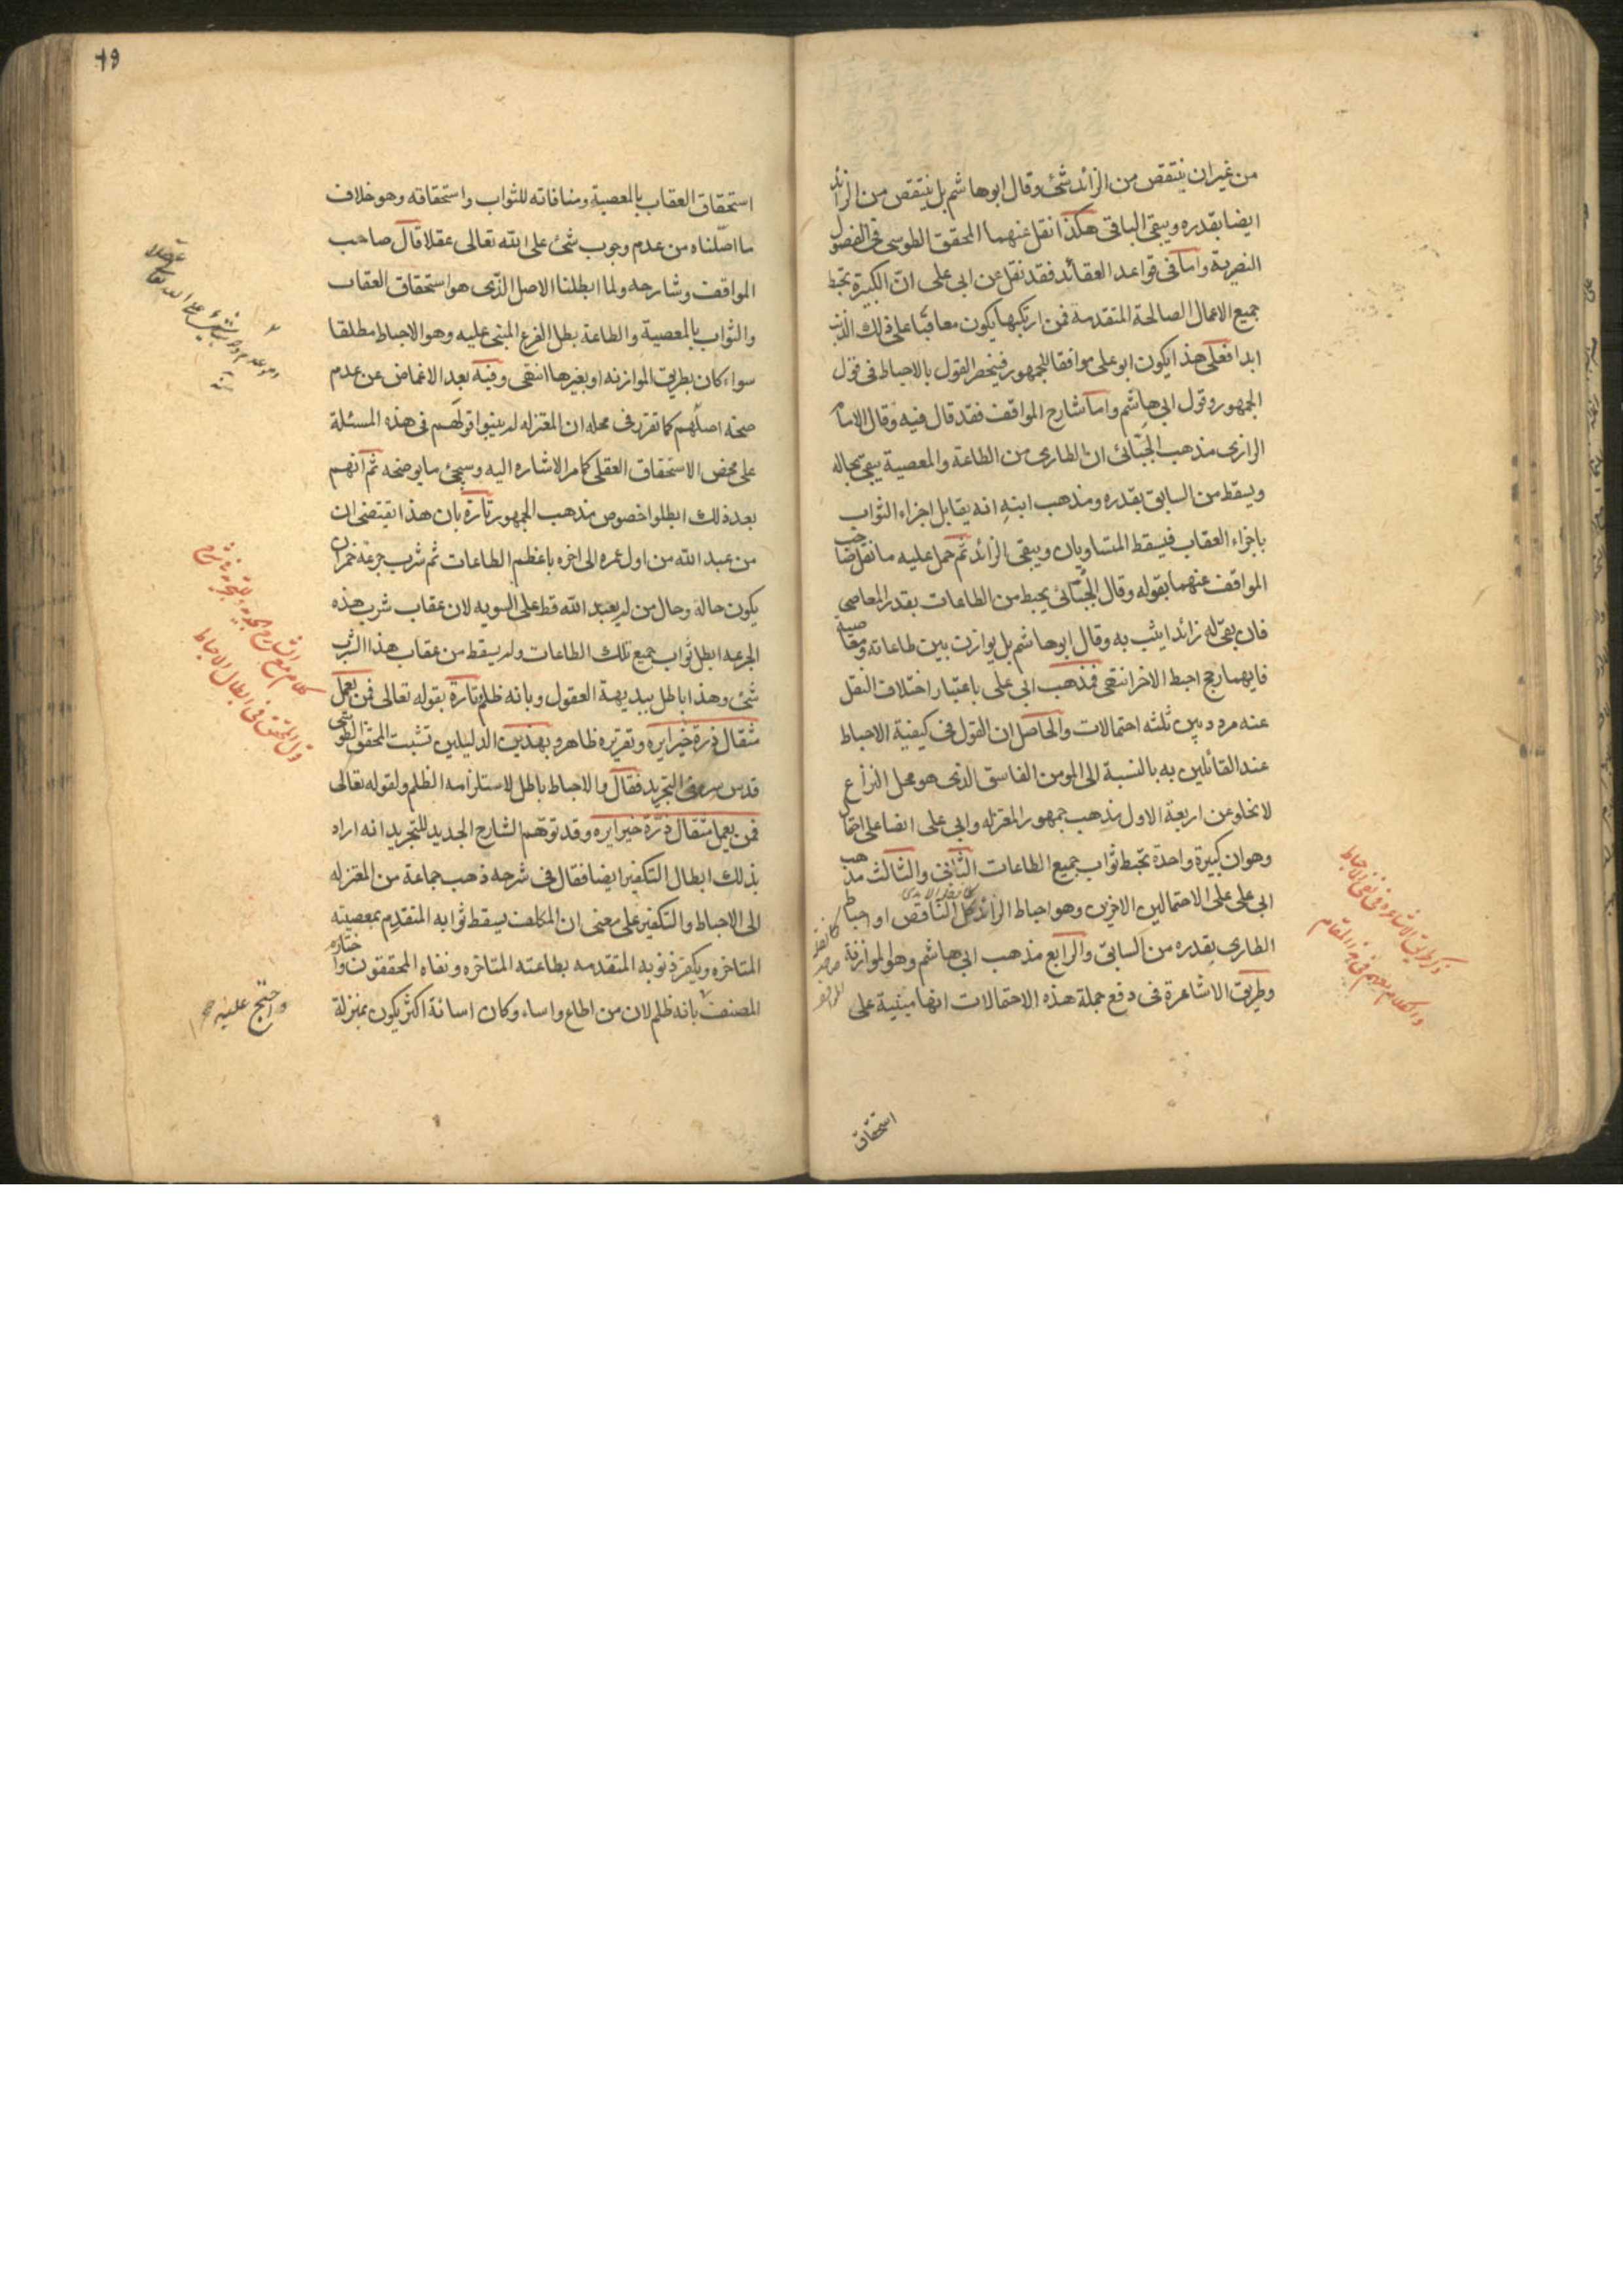 من غير ان ينتقص من الزائد شئ وقال ابو هاشم بل ينتقص من الزائد
ايضا بقدره ويبقى الباقى هكذا نقل عنهما المحقق الطوسى فى الفصول
النصيرية واما فى قواعد العقائد فقد نقل عن ابى على ان الكبيرة تحبط
جميع الاعمال الصالحة المتقدمة فمن ارتكبها يكون معاقبا على ذلك الذنب
ابدا فعلى هذا يكون ابو على موافقا للجمهور فينحصر القول بالاحباط فى قول
الجمهور وقول ابى هاشم واما شارح المواقف فقد قال فيه وقال الامام
الرازى مذهب الجبّائى ان الطارى من الطاعة والمعصية يبقى بحاله
ويسقط من السابق بقدره ومذهب ابنه انه يقابل اجزاء الثواب
باجزاء العقاب فيسقط المتساويان ويبقى الزائد ثم حمل عليه ما نقل صاحب
المواقف عنهما بقوله وقال الجبّائى يحبط من الطاعات بقدر المعاصى
فان بقى له زائد ايثب به وقال ابو هاشم بل يوازن بين طاعاته ومعاصيه
فايهما رجح احبط الاخر انتهى فمذهب ابى على باعتبار اختلاف النقل
عنه مردد بين ثلثه احتمالات والحاصل ان القول فى كيفية الاحباط
عند القائلين به بالنسبة الى المومن الفاسق الذى هو محل النزاع
لا تخلو عن اربعة الاول مذهب جمهور المعتزله وابى على ايضا على احتمال
وهو ان كبيرة واحدة تحبط ثواب جميع الطاعات الثانى والثالث مذهب
ابى على على الاحتمالين الاخرين وهو احباط الزائد كل الناقص او احباط
الطارى بقدره من السابق والرابع مذهب ابى هاشم وهو الموازنة
وطريق الاشاعرة فى دفع جملة هذه الاحتمالات انها مبنية على
استحقاق
استحقاق العقاب بالمعصية ومنافاته للثواب واستحقاقه وهو خلاف
ما اصّلناه من عدم وجوب شئ على الله تعالى عقلا قال صاحب
المواقف وشارحه ولما ابطلنا الاصل الذى هو استحقاق العقاب
والثواب بالمعصية والطاعة بطل الفرع المبنى عليه وهو الاحباط مطلقا
سواء كان بطريق الموازنه او بغيرها انتهى وفيه بعد الاغماض عن عدم
صحة اصلهم كما تقرر فى محله ان المعتزله لم يبنوا قولهم فى هذه المسئلة
على محض الاستحقاق العقلى كما مر الاشاره اليه وسيجئ ما يوضحه ثم انهم
بعد ذلك ابطلوا خصوص مذهب الجمهور تارة بان هذا يقتضى ان
من عبد الله من اول عمره الى اخره باعظم الطاعات ثم شرب جرعة خمر ان
يكون حاله وحال من لم يعبد الله قط على السويه لان عقاب شرب هذه
الجرعه ابطل ثواب جميع تلك الطاعات ولم يسقط من عقاب هذا الشرب
شئ وهذا باطل ببديهة العقول وبانه ظلم وتارة بقوله تعالى فمن يعمل
مثقال ذرة خيرا يره وتقريره ظاهر وبهذين الدليلين تشبث المحقق الطوسى
قدس سره فى التجريد فقال والاحباط باطل لاستلزامه الظلم ولقوله تعالى
فمن يعمل مثقال ذرة خيرا يره وقد توهم الشارح الجديد للتجريد انه اراد
بذلك ابطال التكفير ايضا فقال فى شرحه ذهب جماعة من المعتزله
الى الاحباط والتكفير على معنى ان المكلف يسقط ثوابه المتقدم بمعصيته
المتاخره ويكفر ذنوبه المتقدمه بطاعته المتاخره ونفاه المحققون واختاره
المصنف بانه ظلم لان من اطاع واساء وكان اسائة اكثر يكون بمنزلة
واحتج عليه